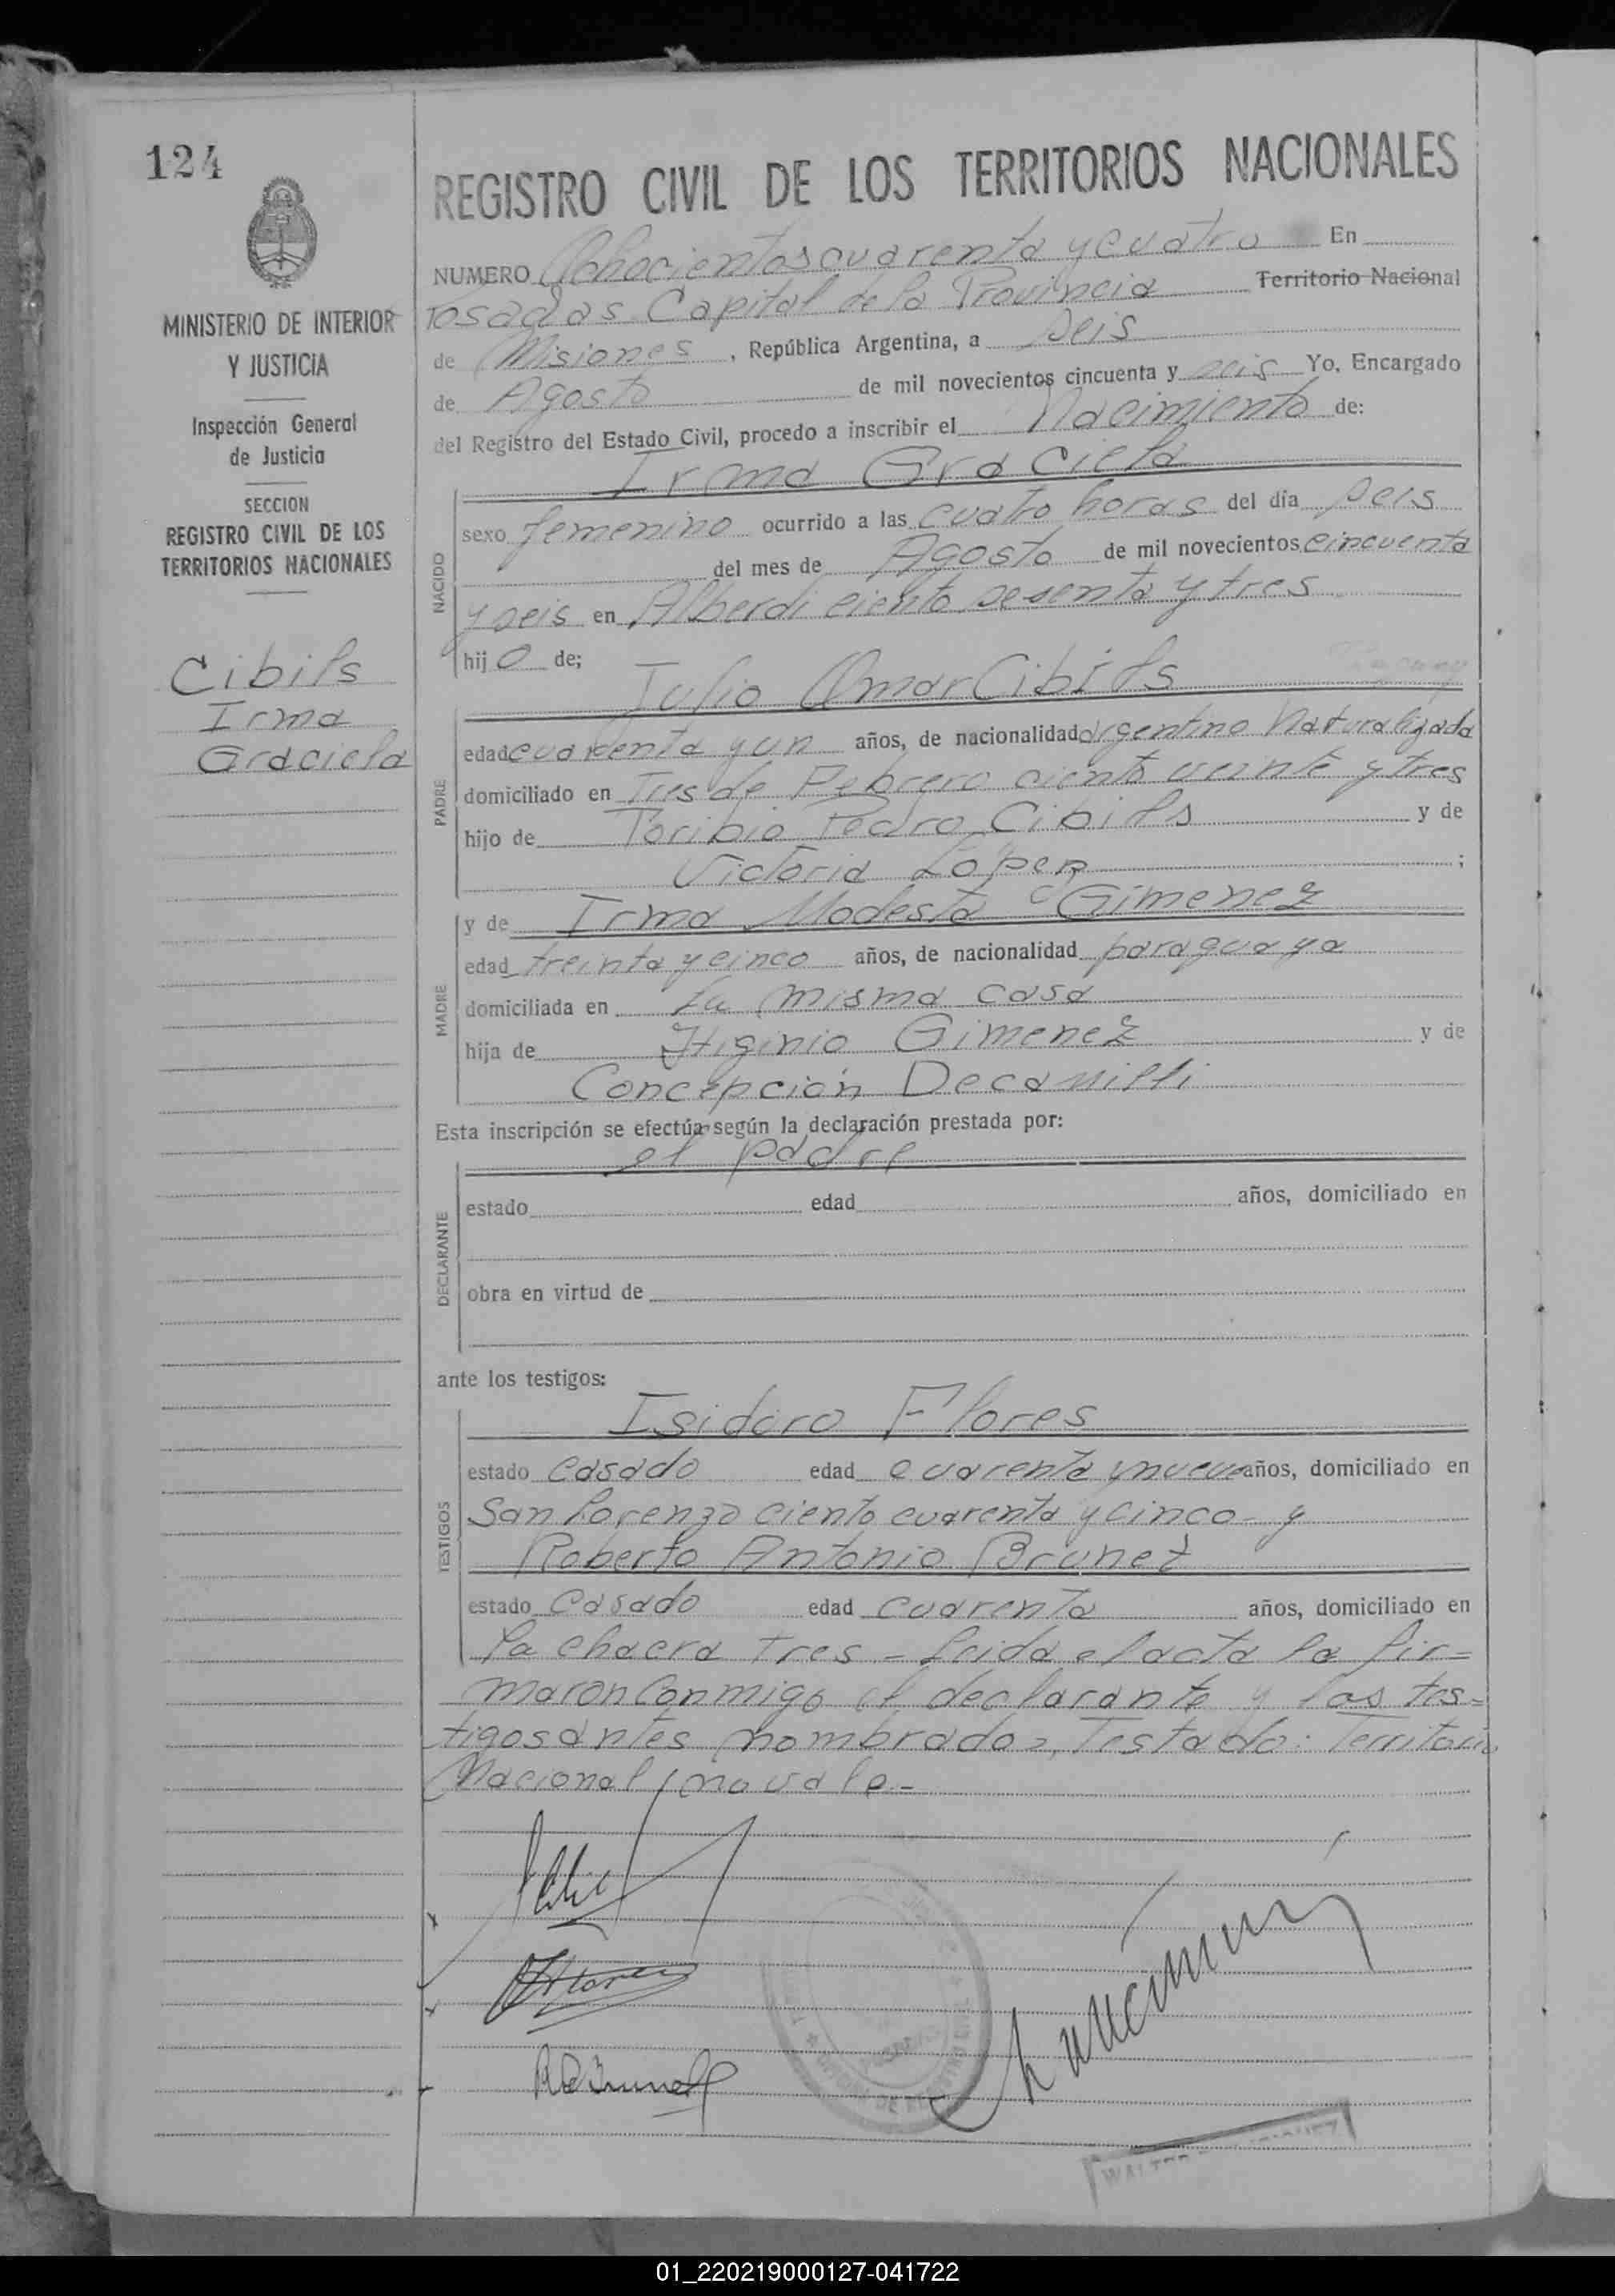 124
MINISTERIO DE INTERIOR
Y JUSTICIA
Inspección General
de Justicia
SECCION
REGISTRO CIVIL DE LOS
TERRITORIOS NACIONALES
Cibils
Irma
Graciela
REGISTRO CIVIL DE LOS TERRITORIOS NACIONALES
NUMERO Ochocientos cuarenta y cuatro En
Posadas Capital de la Provincia Territorio Nacional
de Misiones, República Argentina, a seis
de Agosto de mil novecientos cincuenta y seis Yo, Encargado
del Registro del Estado Civil, procedo a inscribir el Nacimiento de:
Irma Graciela
NACIDO
sexo femenino ocurrido a las cuatro horas del día seis
del mes de Agosto de mil novecientos cincuenta
y seis en Alberdi ciento sesenta y tres
hij a de;
Julio Omar Cibils
PADRE
edad cuarenta y un años, de nacionalidad argentino Naturalizado
domiciliado en Tres de Febrero ciento veinte y tres
hijo de Toribio Pedro Cibils y de
Victoria Lopez ;
MADRE
y de Irma Modesta Gimenez
edad treinta y cinco años, de nacionalidad paraguaya
domiciliada en La misma casa
hija de Higinio Gimenez y de
Concepción Decamilli
Esta inscripción se efectúa según la declaración prestada por:
el padre
DECLARANTE
estado edad años, domiciliado en
obra en virtud de
ante los testigos:
Isidoro Flores
TESTIGOS
estado casado edad cuarenta y nueve años, domiciliado en
San Lorenzo ciento cuarenta y cinco - y
Roberto Antonio Brunet
estado casado edad cuarenta años, domiciliado en
la chacra tres - Leida el acta la fir=
maron conmigo el declarante y los tes=
tigos antes nombrados, Testado: Territorio
Nacional, no vale.-
POSADAS
WALTER
01_220219000127-041722